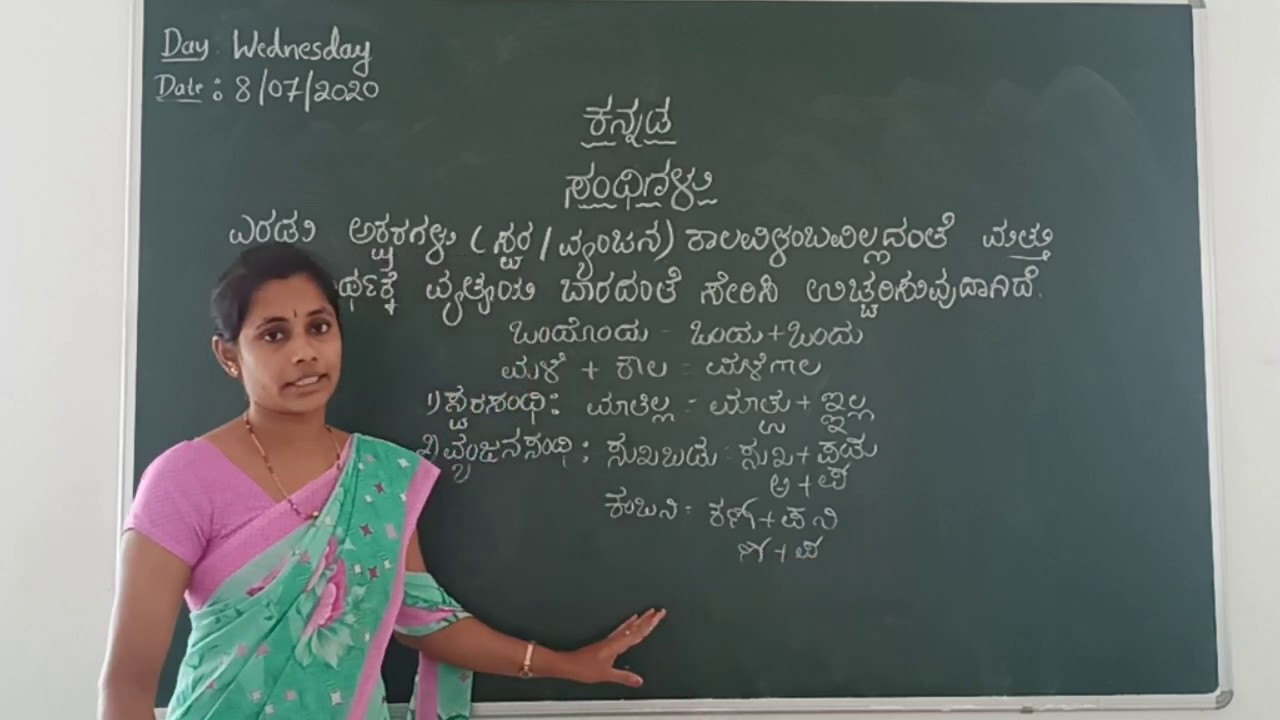 Day: Wednesday
Date: 8/07/2020
ಕನ್ನಡ
ಸಂಧಿಗಳು
ಎರಡು ಅಕ್ಷರಗಳು (ಸ್ವರ/ವ್ಯಂಜನ) ಕಾಲವಿಳಂಬವಿಲ್ಲದಂತೆ ಮತ್ತು
ರ್ಥಕ್ಕೆ ವ್ಯತ್ಯಯ ಬಾರದಂತೆ ಸೇರಿಸಿ ಉಚ್ಚರಿಸುವುದಾಗಿದೆ.
ಒಂದೊಂದು - ಒಂದು + ಒಂದು
ಮಳೆ + ಕಾಲ = ಮಳೆಗಾಲ
1) ಸ್ವರಸಂಧಿ: ಮಾತಿಲ್ಲ = ಮಾತು + ಇಲ್ಲ
2) ವ್ಯಂಜನಸಂಧಿ: ಸುಖಬಡು = ಸುಖ + ಪಡು
ಅ + ಪ
ಕಂಬನಿ = ಕಣ್ + ಪನಿ
ಣ್ + ಪ